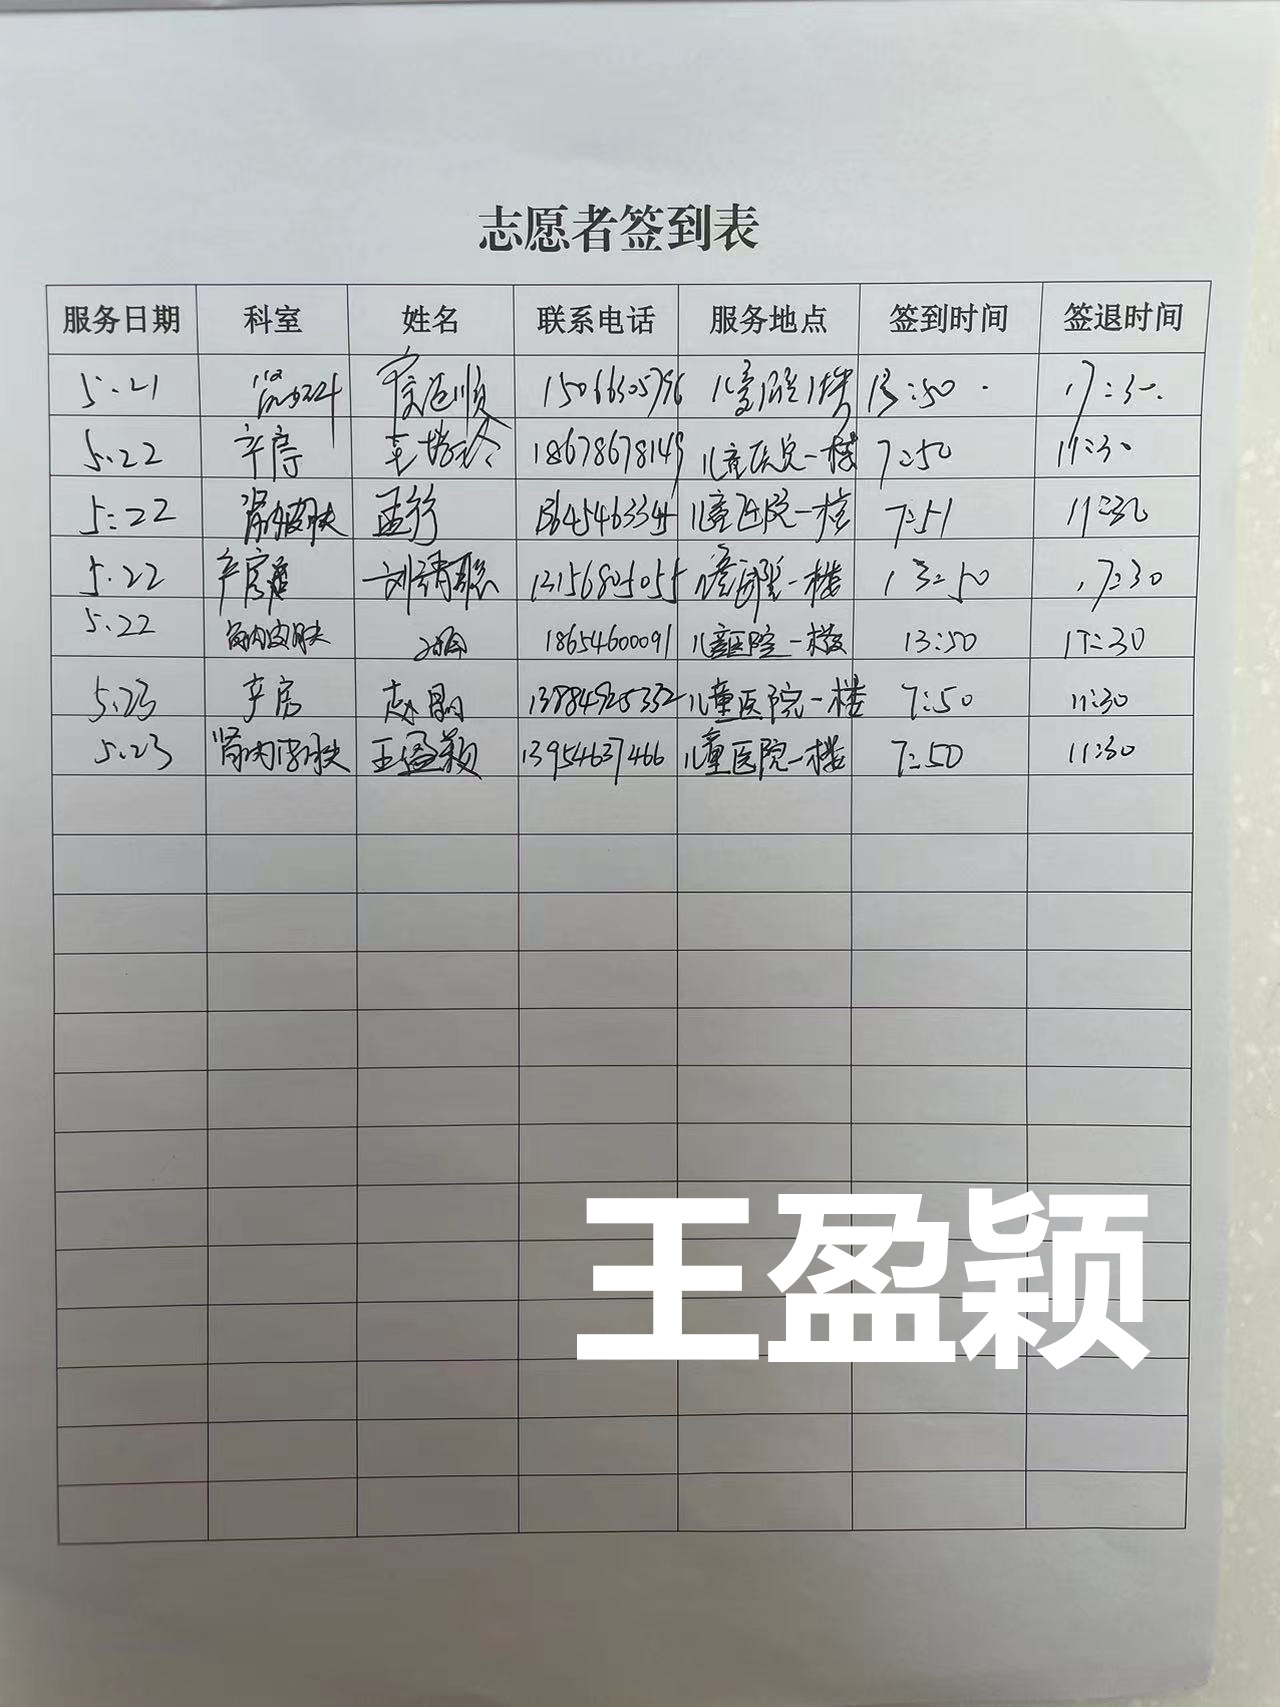 志愿者签到表
服务日期 科室 姓名 联系电话 服务地点 签到时间 签退时间
5.21 15066305796 儿童医院1楼 13:50 17:30
5.22 产房 18678678149 儿童医院一楼 7:50 11:30
5:22 肾内皮肤 孟行 儿童医院一楼 7:51 11:30
5.22 产房 刘靖聪 13156805055 儿童医院一楼 13:50 17:30
5.22 肾内皮肤 18654600091 儿童医院一楼 13:50 17:30
5.23 产房 赵晶 13884925332 儿童医院一楼 7:50 11:30
5.23 肾内皮肤 王盈颖 13954637466 儿童医院一楼 7:50 11:30
王盈颖